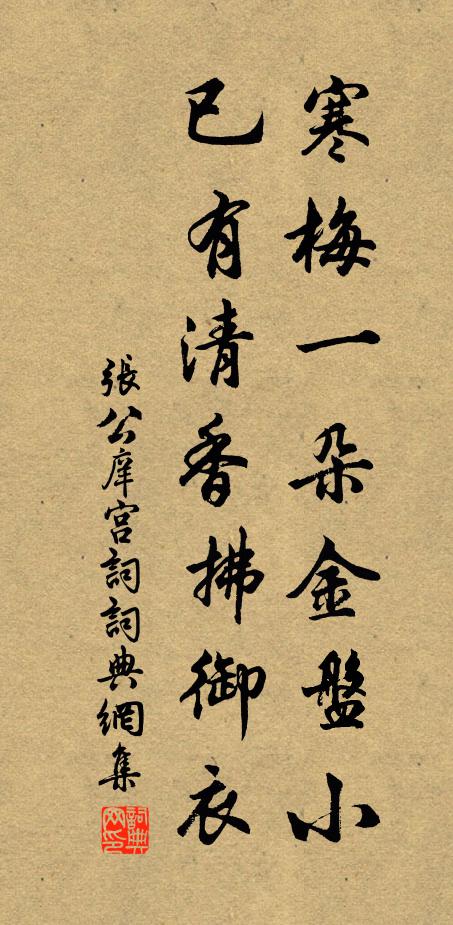 寒梅一朵金盤小
已有清香拂御衣
張公庠宮詞詞典網集
詞典網印